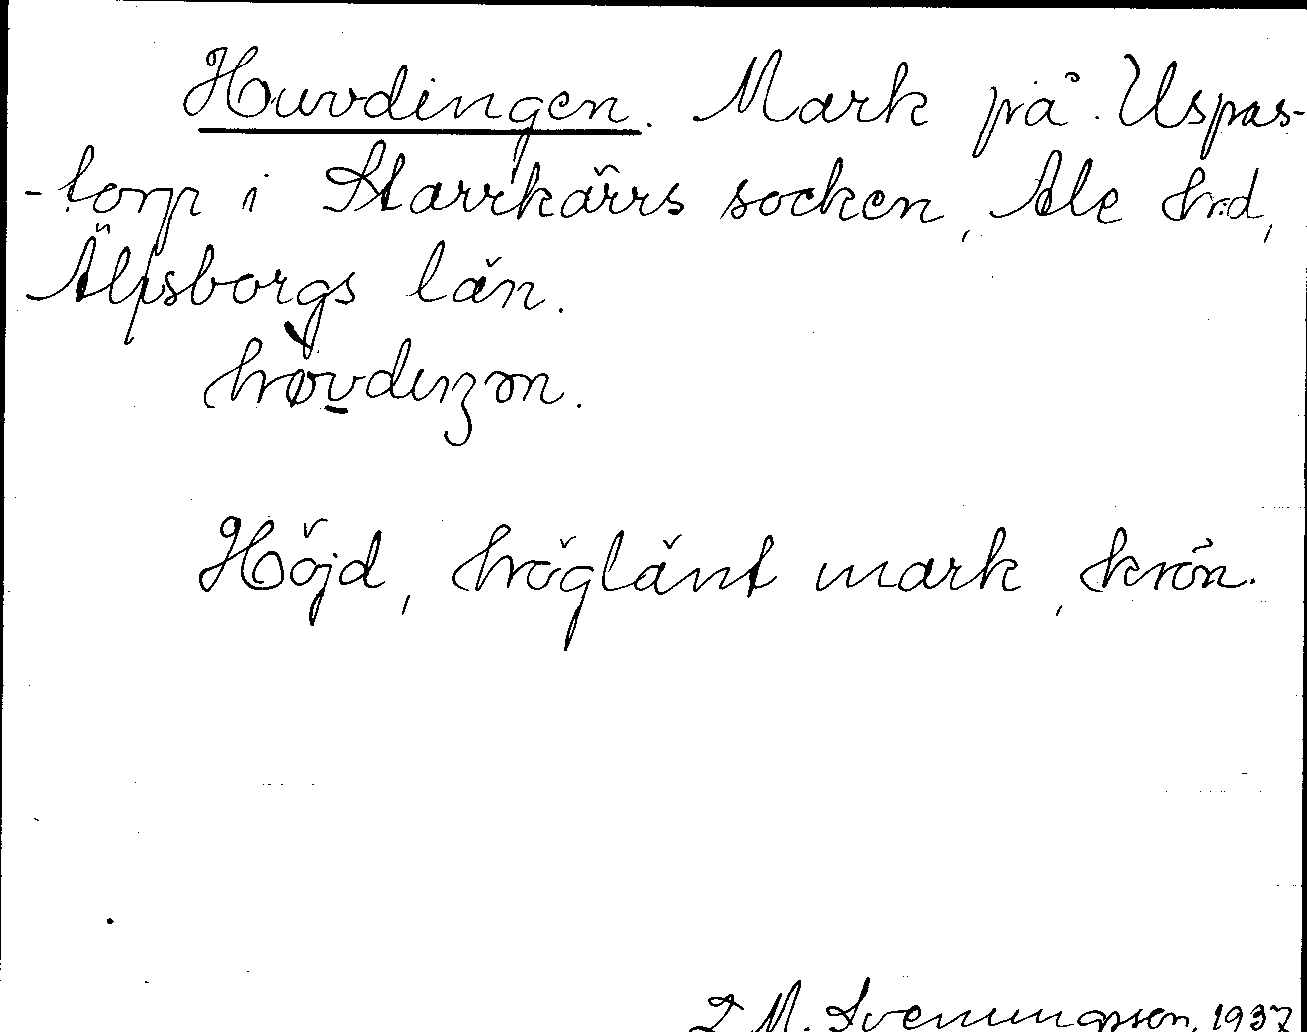 Huvdingen. Mark på Uspas-
-torp i Starrkärrs socken, Ale hrd,
Älfsborgs län.
Höjd, höglänt mark, krön.
M. Svenungsson, 1937